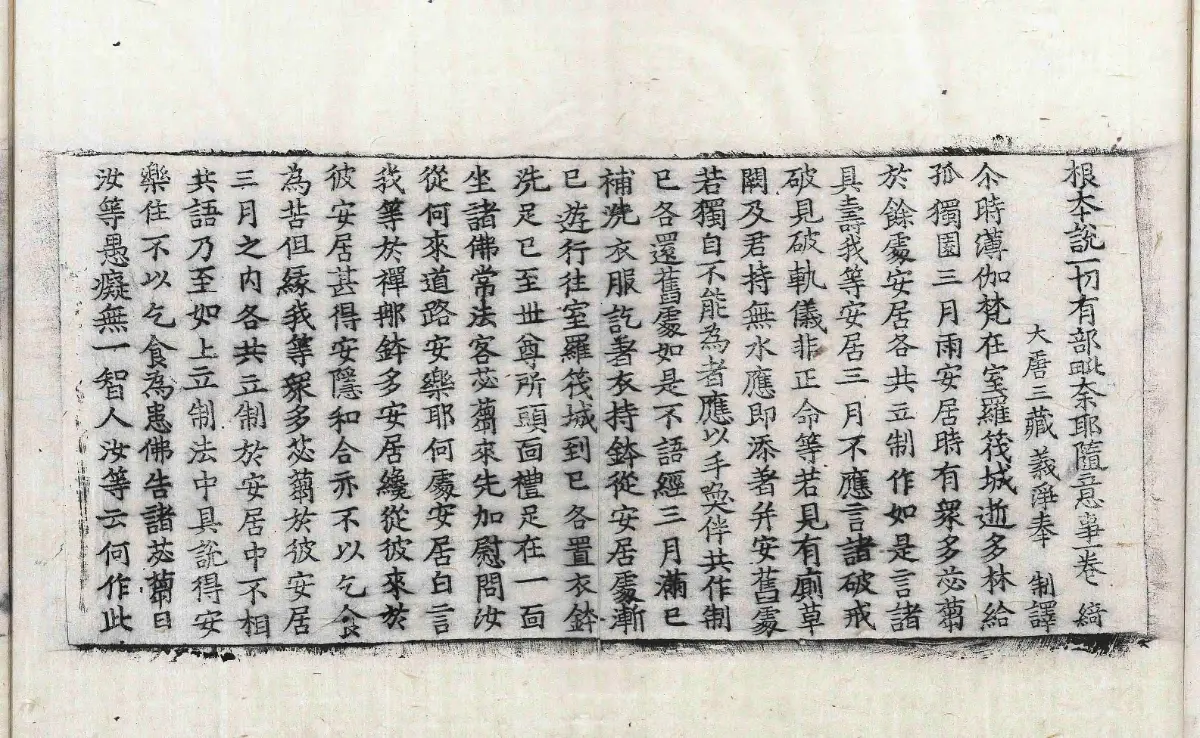 根本說一切有部毗奈耶隨意事一卷 綺
大唐三藏義淨奉 制譯
尒時薄伽梵在室羅筏城逝多林給
孤獨園三月雨安居時有衆多苾蒭
於餘處安居各共立制作如是言諸
具壽我等安居三月不應言諸破戒
破見破軌儀非正命等若見有廁草
闕及君持無水應即添著幷安舊處
若獨自不能為者應以手喚伴共作制
已各還舊處如是不語經三月滿已
補浣衣服訖著衣持鉢從安居處漸
已遊行往室羅筏城到已各置衣鉢
洗足已至世尊所頭面禮足在一面
坐諸佛常法客苾蒭來先加慰問汝
從何來道路安樂耶何處安居白言
我等於禪那鉢多安居纔從彼來於
彼安居甚得安隱和合亦不以乞食
為苦但緣我等衆多苾蒭於彼安居
三月之內各共立制於安居中不相
共語乃至如上立制法中具說得安
樂住不以乞食為患佛告諸苾蒭曰
汝等愚癡無一智人汝等云何作此